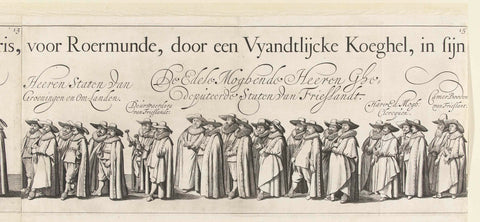 13 15
ris, voor Roermunde, door een Vyandtlijcke Koeghel, in sijn
Heeren Staten Van
Groeningen en Om-landen.
Deurwaerders
van Frieslandt.
De Edele Moghende Heeren Ghe-
deputeerde Staten Van Frieslandt.
Hare Ed. Mogh.
Clercquen.
Camer Booden
van Frieslant.